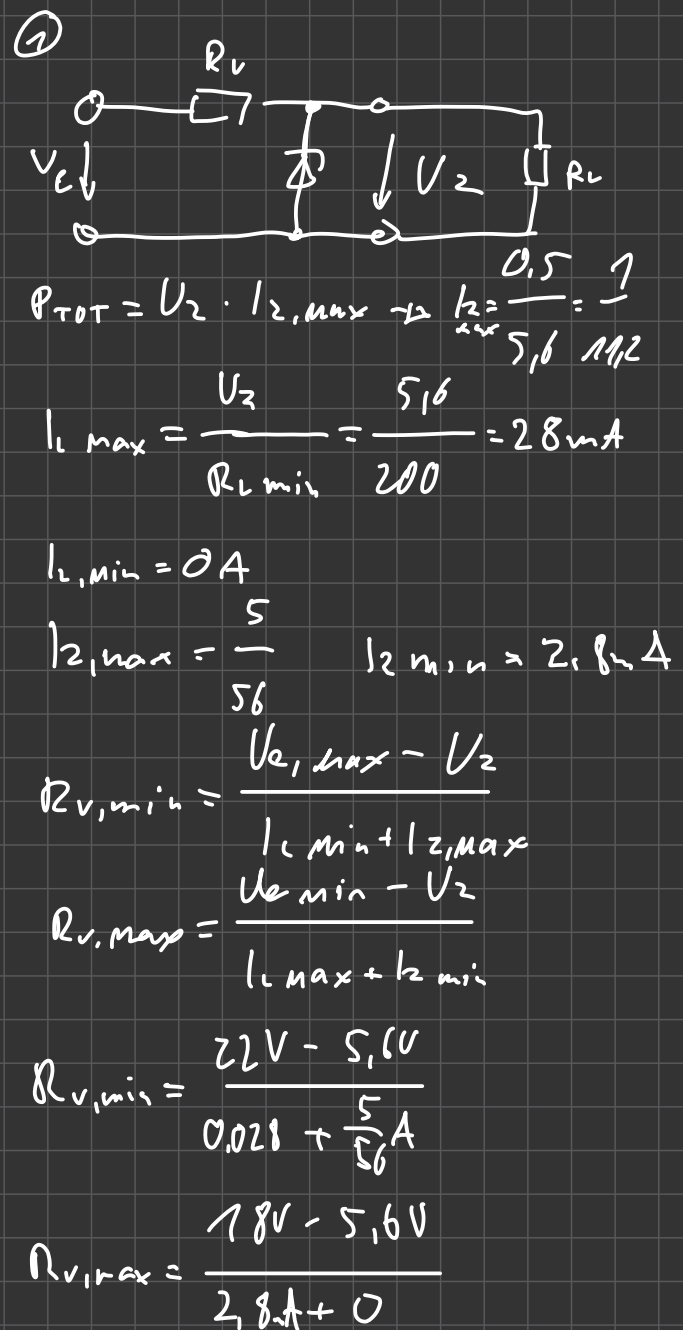 1
Rv
Ve U2 RL
PTOT = U2 · I2,max → I2 max = 0,5/5,6 = 1/11,2
IL max = U2/RL min = 5,6/200 = 28mA
IL,min = 0A
I2,max = 5/56 I2 min = 2,8mA
Rv,min = (Ue,max - U2)/(IL min + I2,max)
Rv,max = (Ue min - U2)/(IL max + I2 min)
Rv,min = (22V - 5,6V)/(0,028 + 5/56 A)
Rv,max = (18V - 5,6V)/(2,8mA + 0)